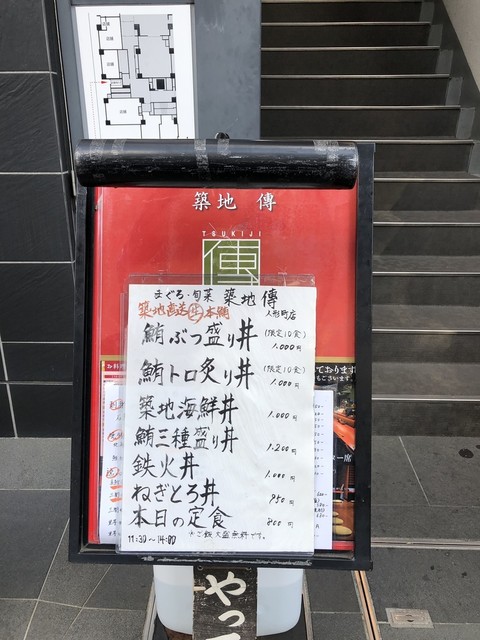 築地 傳
TSUKIJI
傳
まぐろ・旬菜 築地 傳
築地直送 生 本鮪 人形町店
鮪ぶつ盛り丼 (限定10食) 1.000円
鮪トロ炙り丼 (限定10食) 1.000円
築地海鮮丼 1.000円
鮪三種盛り丼 1.200円
鉄火丼 1.000円
ねぎとろ丼 950円
本日の定食 800円
11:30〜14:00 *ご飯大盛無料です。
ております
もございます。
ー席
やっ